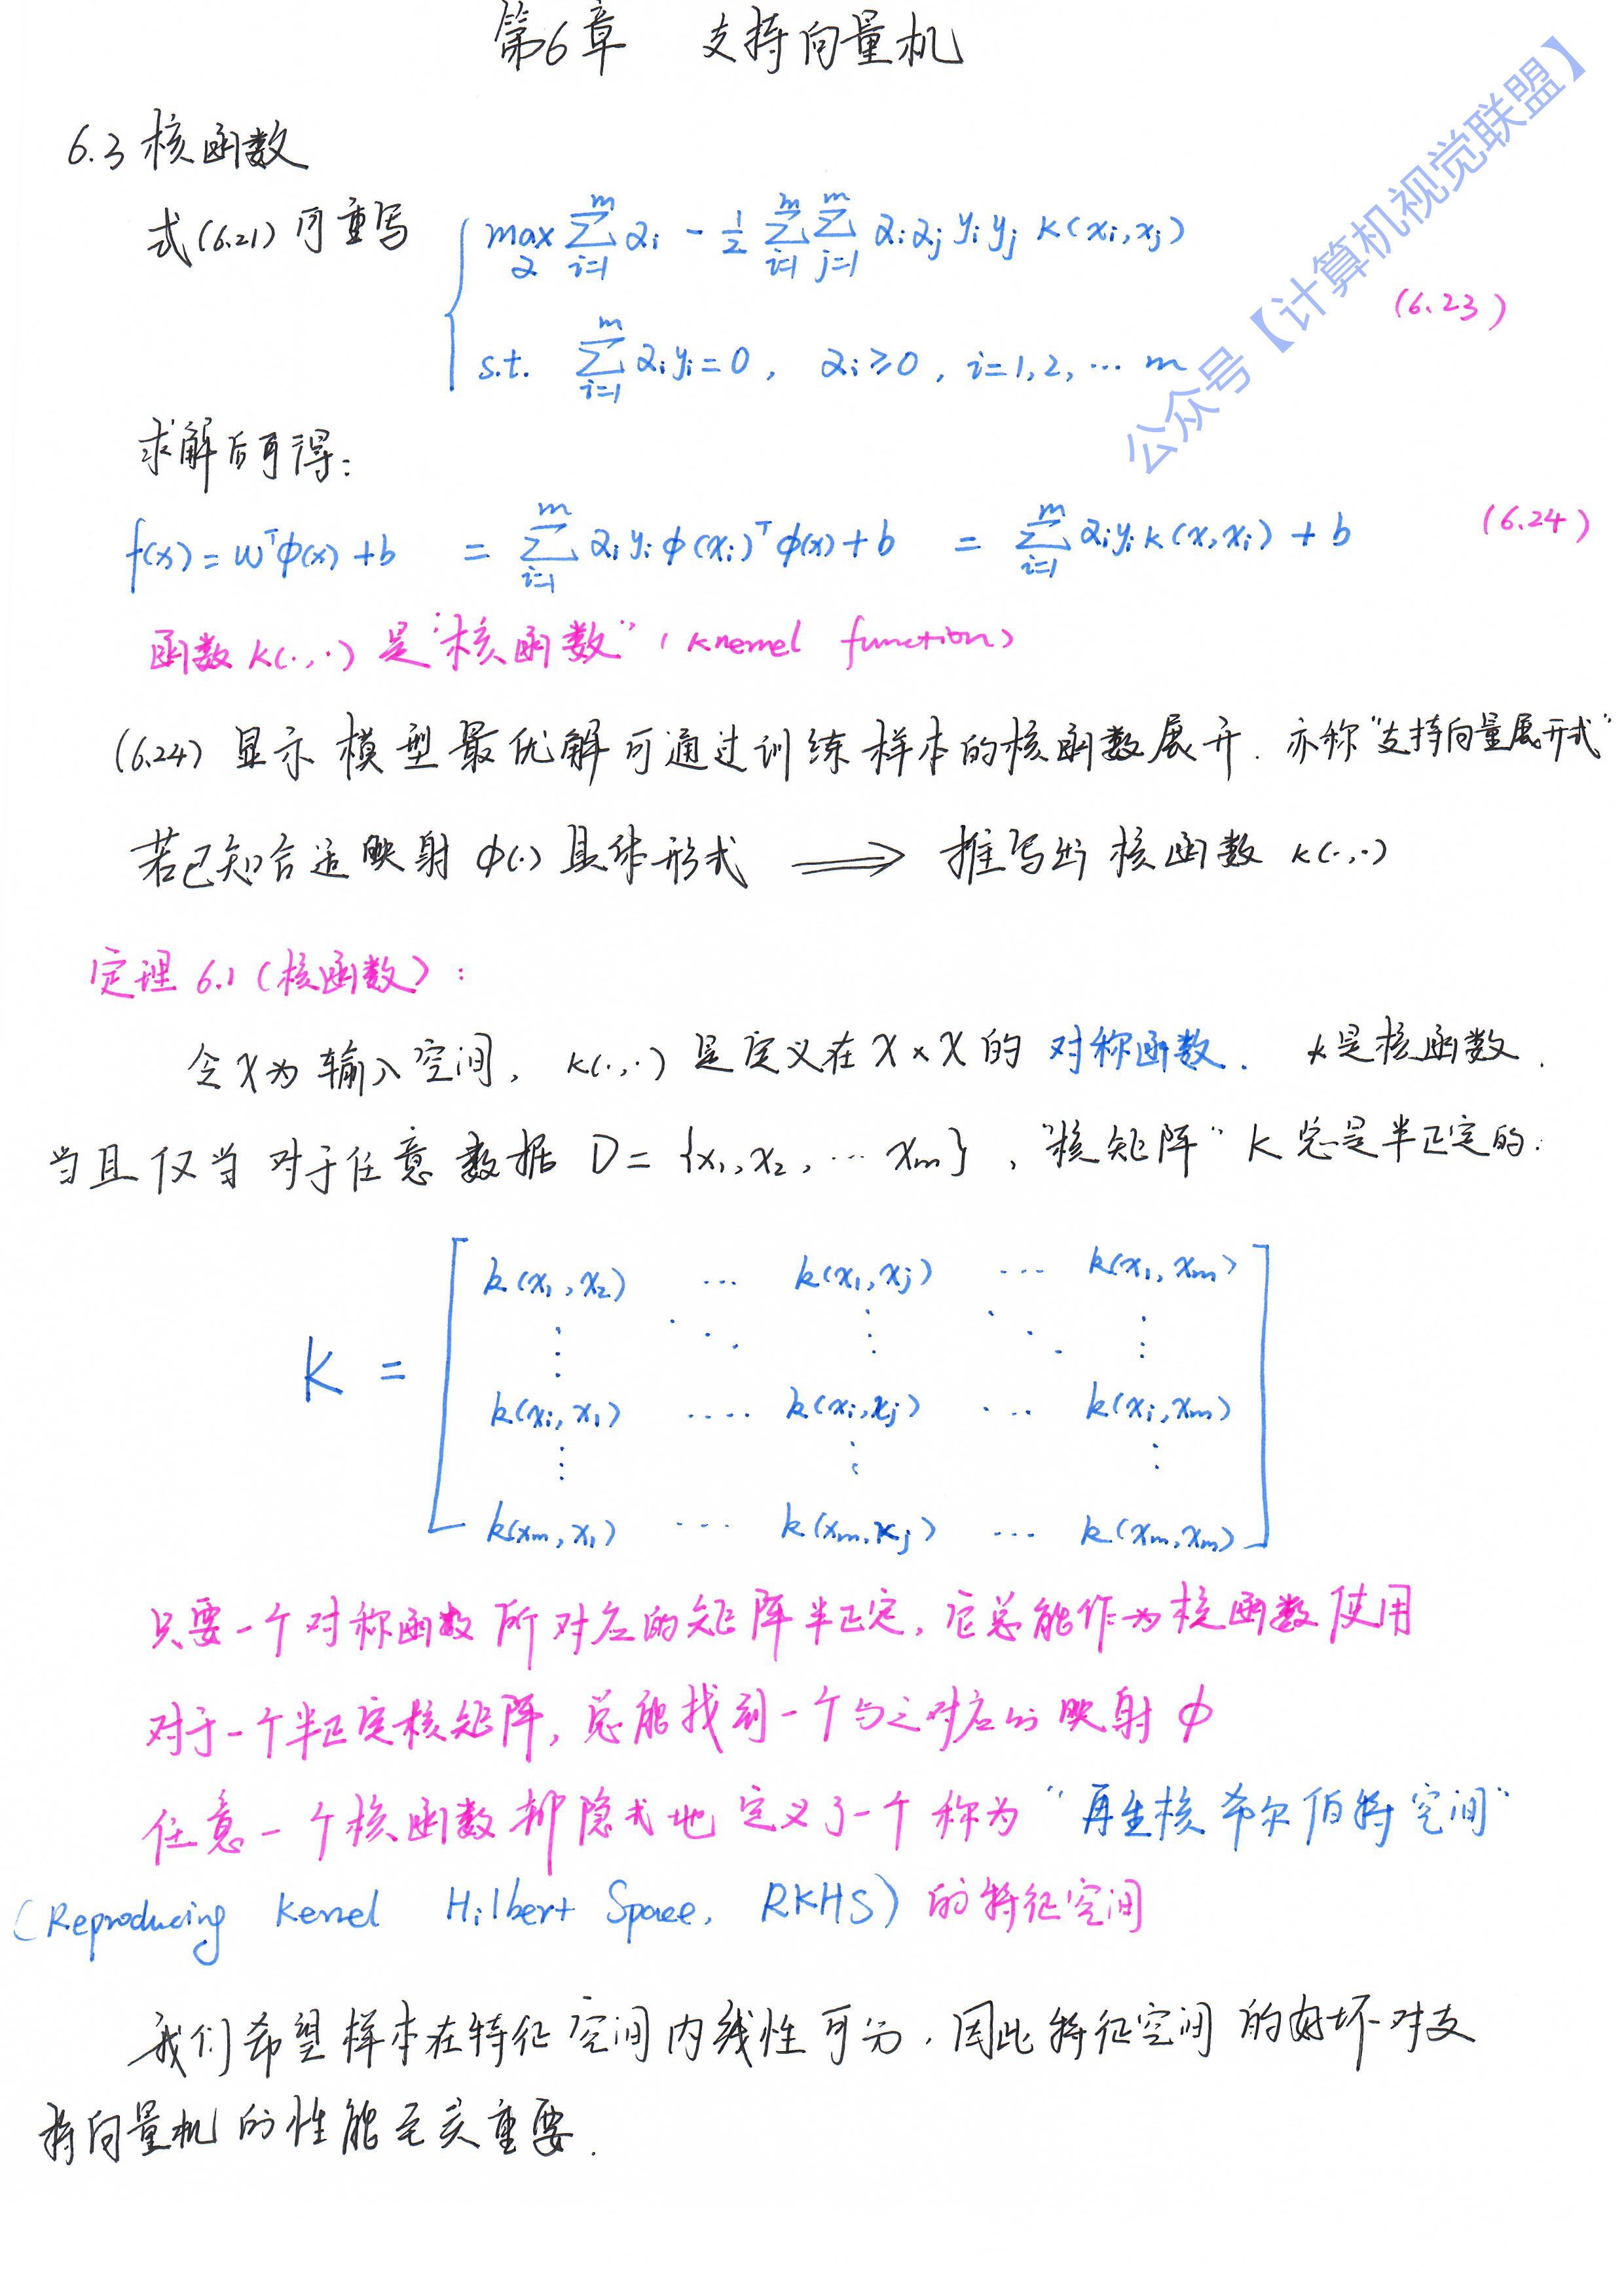 第6章 支持向量机
公众号【计算机视觉联盟】
6.3 核函数
式(6.21)可重写 max_α ∑_{i=1}^{m} α_i - 1/2 ∑_{i=1}^{m} ∑_{j=1}^{m} α_i α_j y_i y_j κ(x_i, x_j)
(6.23)
s.t. ∑_{i=1}^{m} α_i y_i = 0, α_i ≥ 0, i=1,2,… m
求解后可得:
f(x) = w^T φ(x) + b = ∑_{i=1}^{m} α_i y_i φ(x_i)^T φ(x) + b = ∑_{i=1}^{m} α_i y_i κ(x, x_i) + b (6.24)
函数 κ(·,·) 是“核函数”(knernel function)
(6.24) 显示模型最优解可通过训练样本的核函数展开. 亦称“支持向量展开式”
若已知合适映射 φ(·) 具体形式 ⟹ 推写出核函数 κ(·,·)
定理 6.1 (核函数):
令 X 为输入空间, κ(·,·) 是定义在 X × X 的对称函数. κ是核函数.
当且仅当对于任意数据 D = {x_1, x_2, … x_m}, “核矩阵” K 总是半正定的:
k(x_1, x_2) … k(x_1, x_j) … k(x_1, x_m)
K =
k(x_i, x_1) …. k(x_i, x_j) … k(x_i, x_m)
k(x_m, x_1) … k(x_m, x_j) … k(x_m, x_m)
只要一个对称函数所对应的矩阵半正定, 它总能作为核函数使用
对于一个半正定核矩阵, 总能找到一个与之对应的映射 φ
任意一个核函数都隐式地定义了一个称为“再生核希尔伯特空间”
(Reproducing Kernel Hilbert Space, RKHS) 的特征空间
我们希望样本在特征空间内线性可分, 因此特征空间的好坏对支
持向量机的性能至关重要.